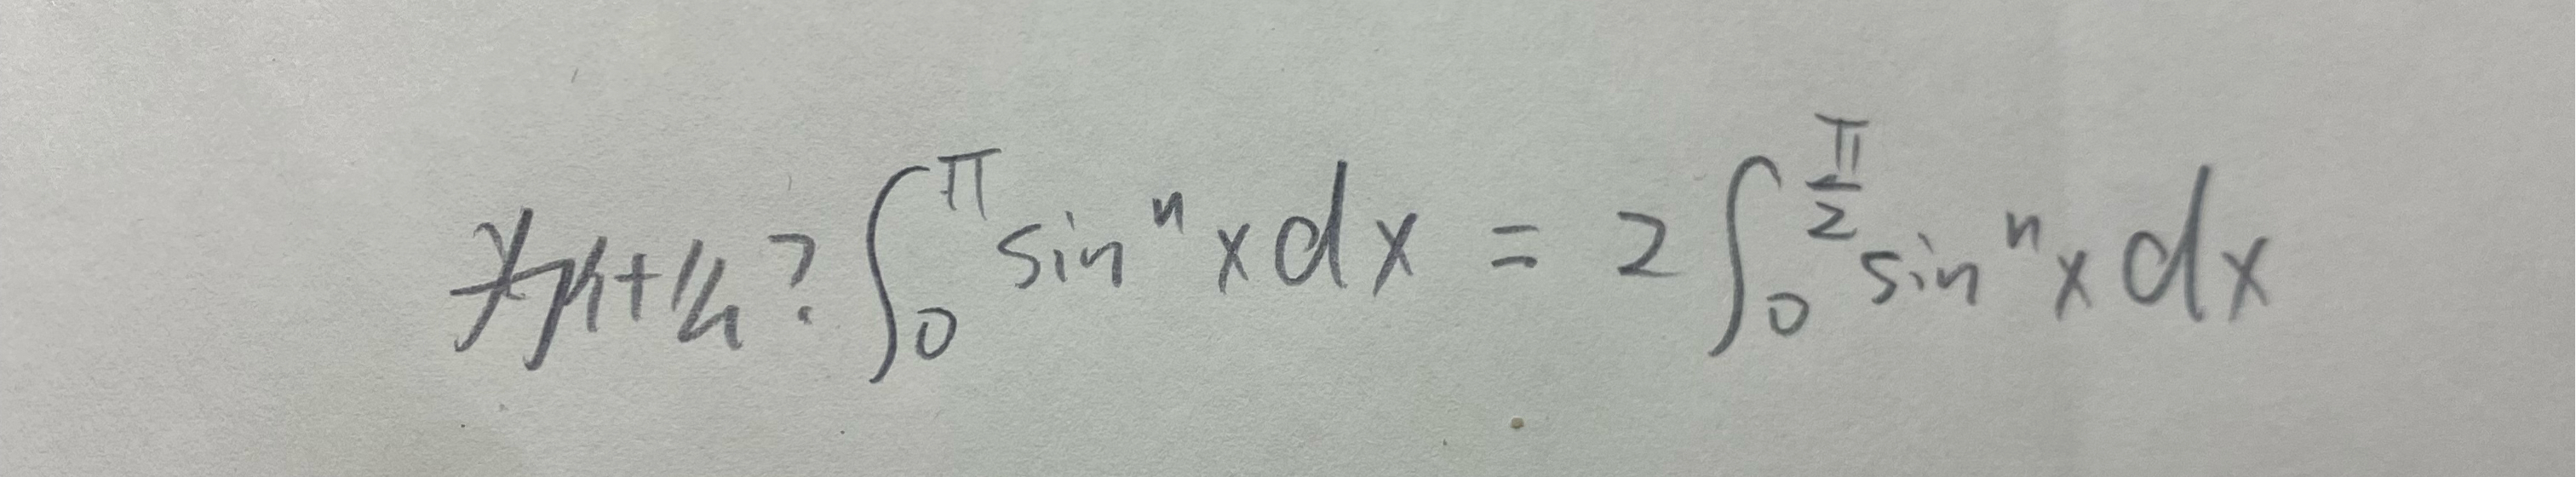 为什么? ∫₀^π sinⁿx dx = 2∫₀^(π/2) sinⁿx dx